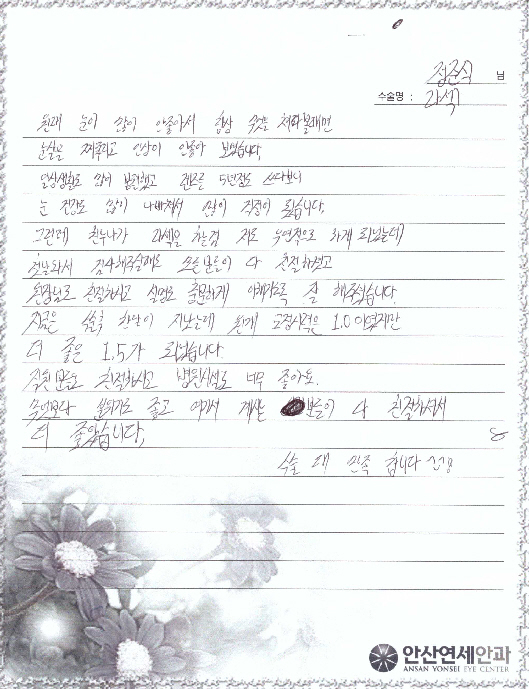 정준식 님
수술명 : 라섹
원래 눈이 많이 안좋아서 항상 무엇을 쳐다볼때면
눈살을 찌푸리고 인상이 안좋아 보였습니다.
일상생활도 많이 불편했고 렌즈를 5년정도 쓰다보니
눈 건강도 많이 나빠져서 많이 걱정이 됬습니다.
그런데 친누나가 라섹을 하는겸 저도 우연적으로 하게 되었는데
첫날와서 검사해주실때도 모든분들이 다 친절하셨고
원장님도 친절하시고 설명도 충분하게 이해가도록 잘 해주셨습니다.
지금은 수술후 한달이 지났는데 원래 교정시력은 1.0 이였지만
더 좋은 1.5가 되었습니다.
직원분들도 친절하시고 병원시설도 너무 좋아요.
무엇보다 분위기도 좋고 여기서 계신 분들이 다 친절하셔서
더 좋았습니다.
수술 대 만족 합니다
안산연세안과
ANSAN YONSEI EYE CENTER